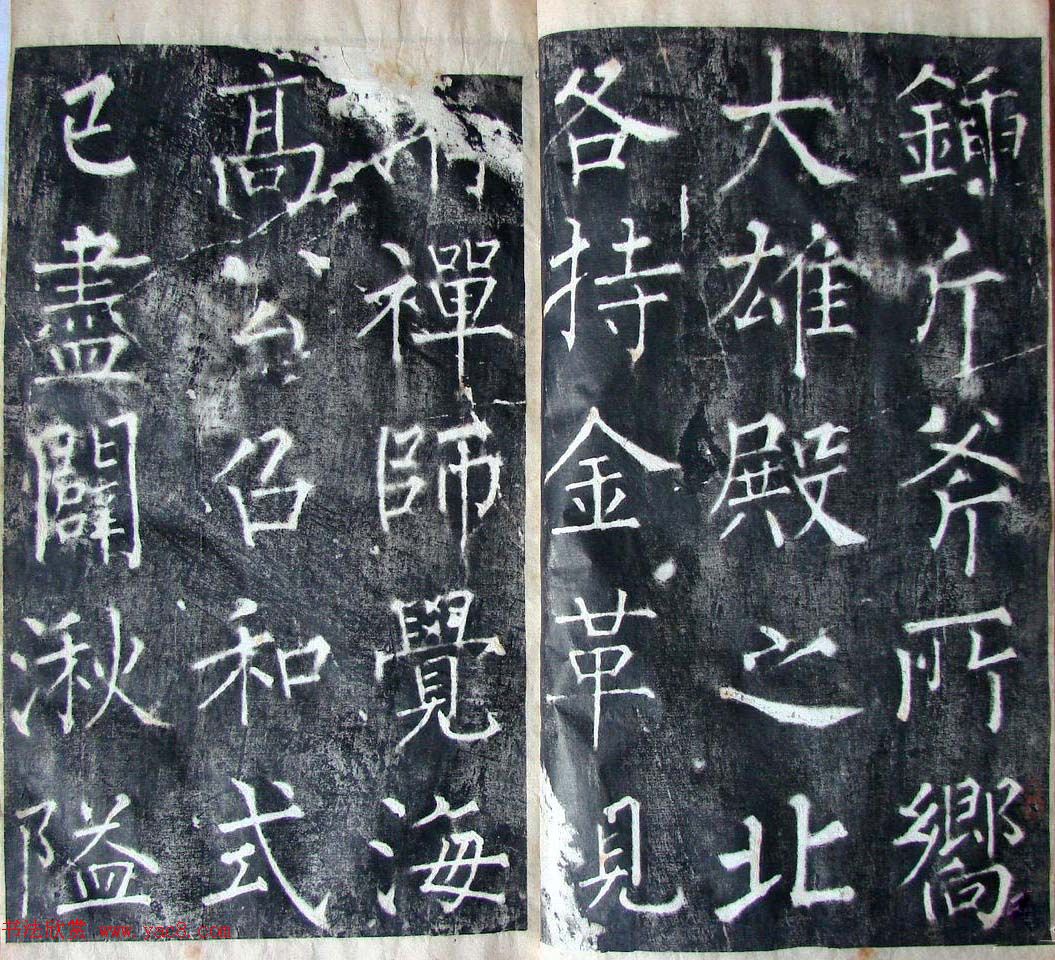 鍤斤斧所嚮
大雄殿之北
各持金革見
禪師覺海
高召和式
已盡闢湫隘
书法欣赏 www.yac8.com